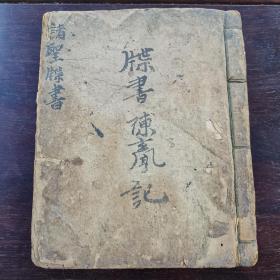 牒書陳記
諸聖牒書